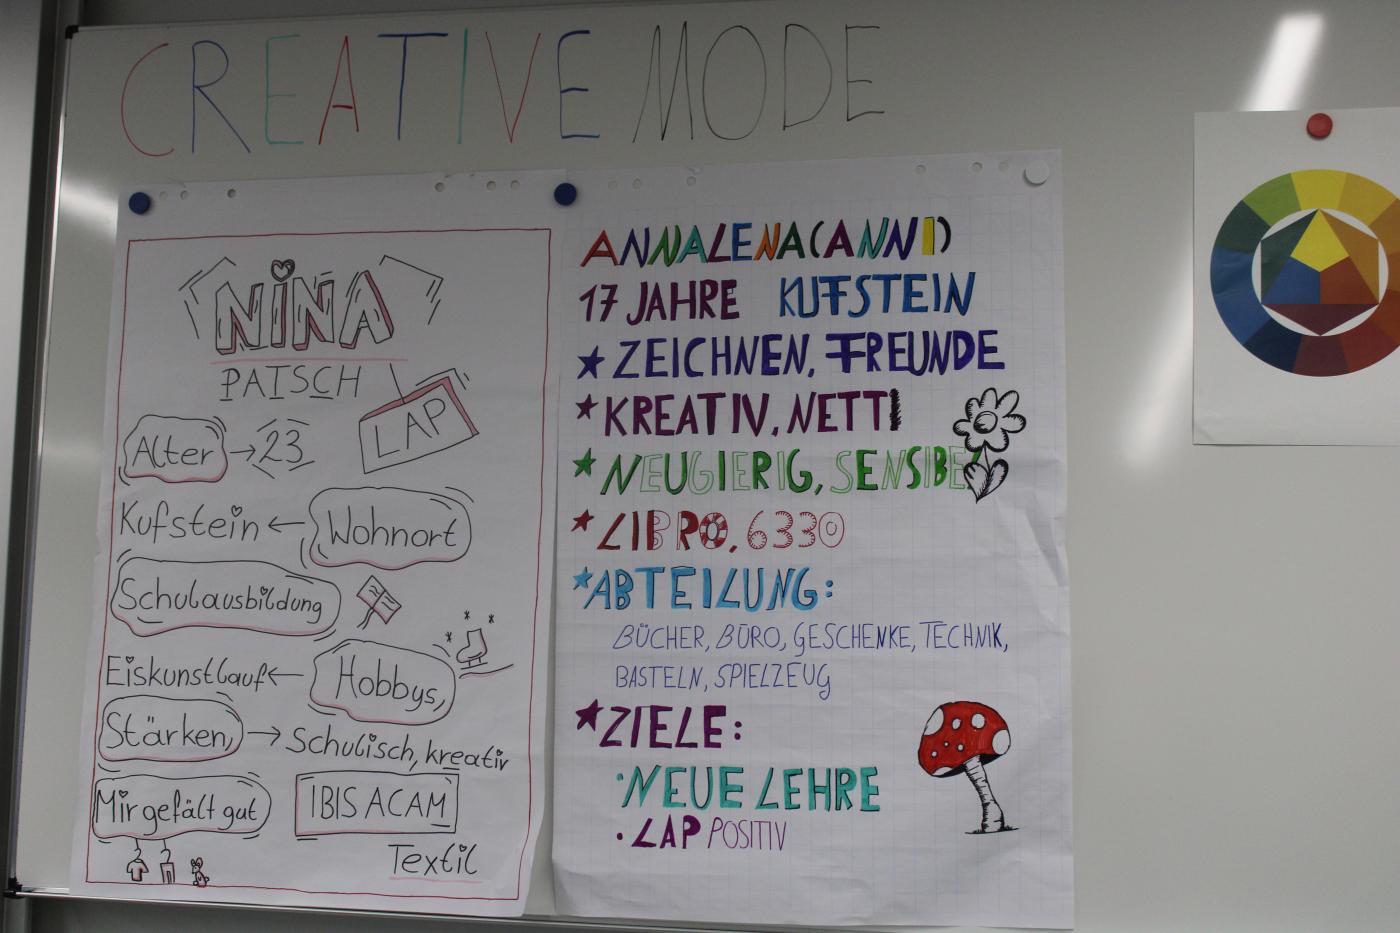 CREATIVE MODE
NINA
PATSCH
LAP
Alter → 23
Kufstein ← Wohnort
Schulausbildung
Eiskunstlauf ← Hobbys,
Stärken, → Schulisch, kreativ
Mir gefält gut
IBIS ACAM
Textil
ANNALENA (ANNI)
17 JAHRE KUFSTEIN
★ ZEICHNEN, FREUNDE
★ KREATIV, NETT
★ NEUGIERIG, SENSIBEL
★ LIBRO, 6330
★ ABTEILUNG:
BÜCHER, BÜRO, GESCHENKE, TECHNIK,
BASTELN, SPIELZEUG
★ ZIELE:
· NEUE LEHRE
· LAP POSITIV